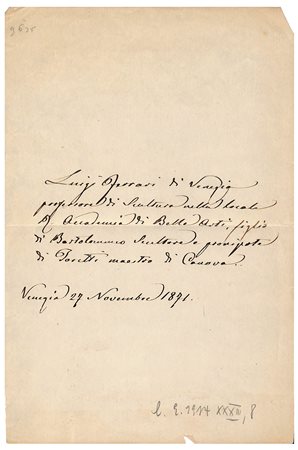 Luigi Ferrari di Venezia
professore di Scultura nella locale
R. Accademia di Belle Arti, figlio
di Bartolommeo Scultore e pronipote
di Toretti maestro di Canova.
Venezia 27 Novembre 1871.
1917 XXXIII, 8